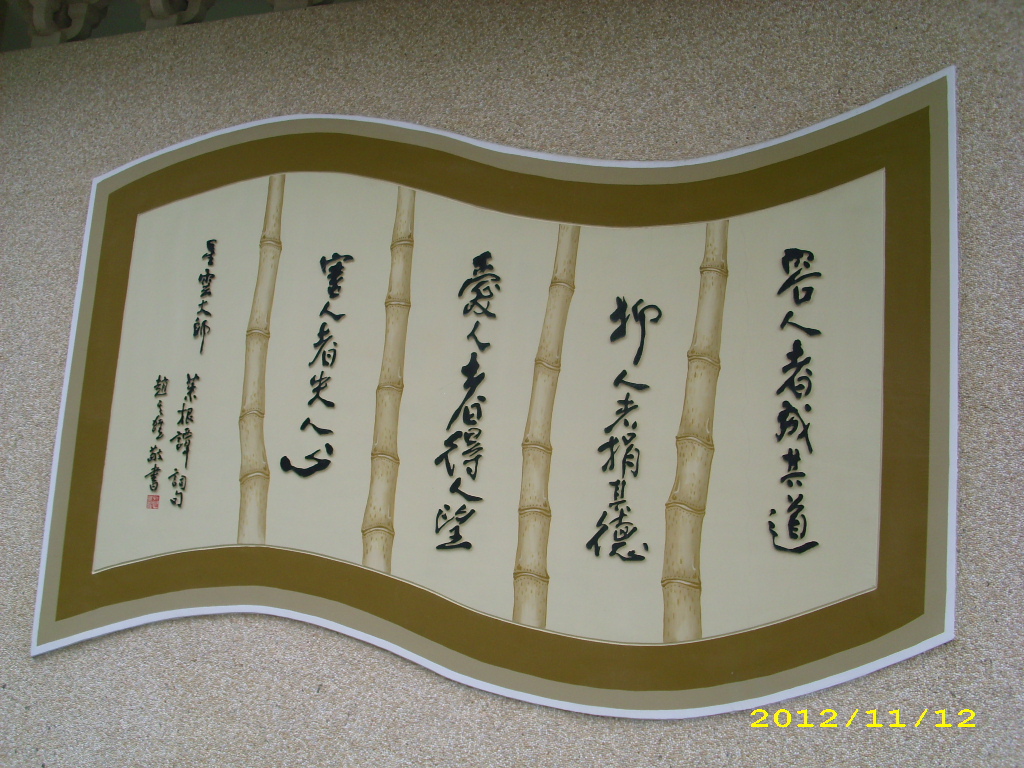 容人者成其道
抑人者損其德
愛人者得人望
害人者失人心
星雲大師
菜根譚詞句
敬書
2012/11/12